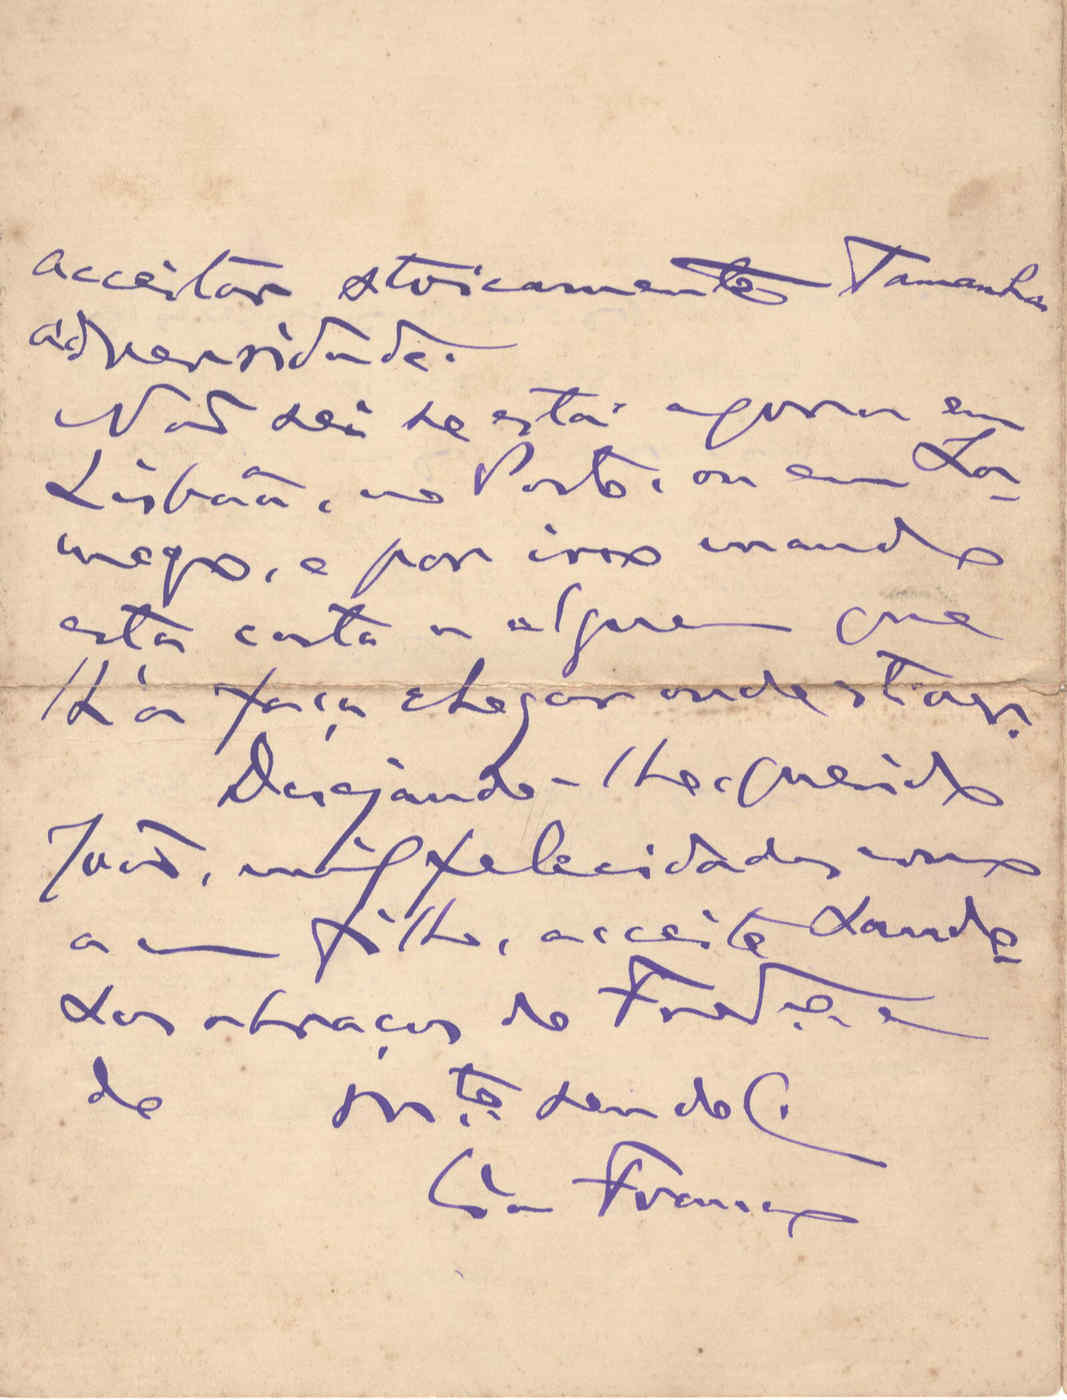 acceitar stoicamente tamanha
adversidade.
Não sei se está agora em
Lisbôa, no Porto, ou em La-
mego, e por isso mando
esta carta a alguem que
lh'a faça chegar onde estiver.
Desejando-lhe, querido
João, mil felecidades como
a um filho, acceite sauda-
sos abraços do
de m.to seu do C.